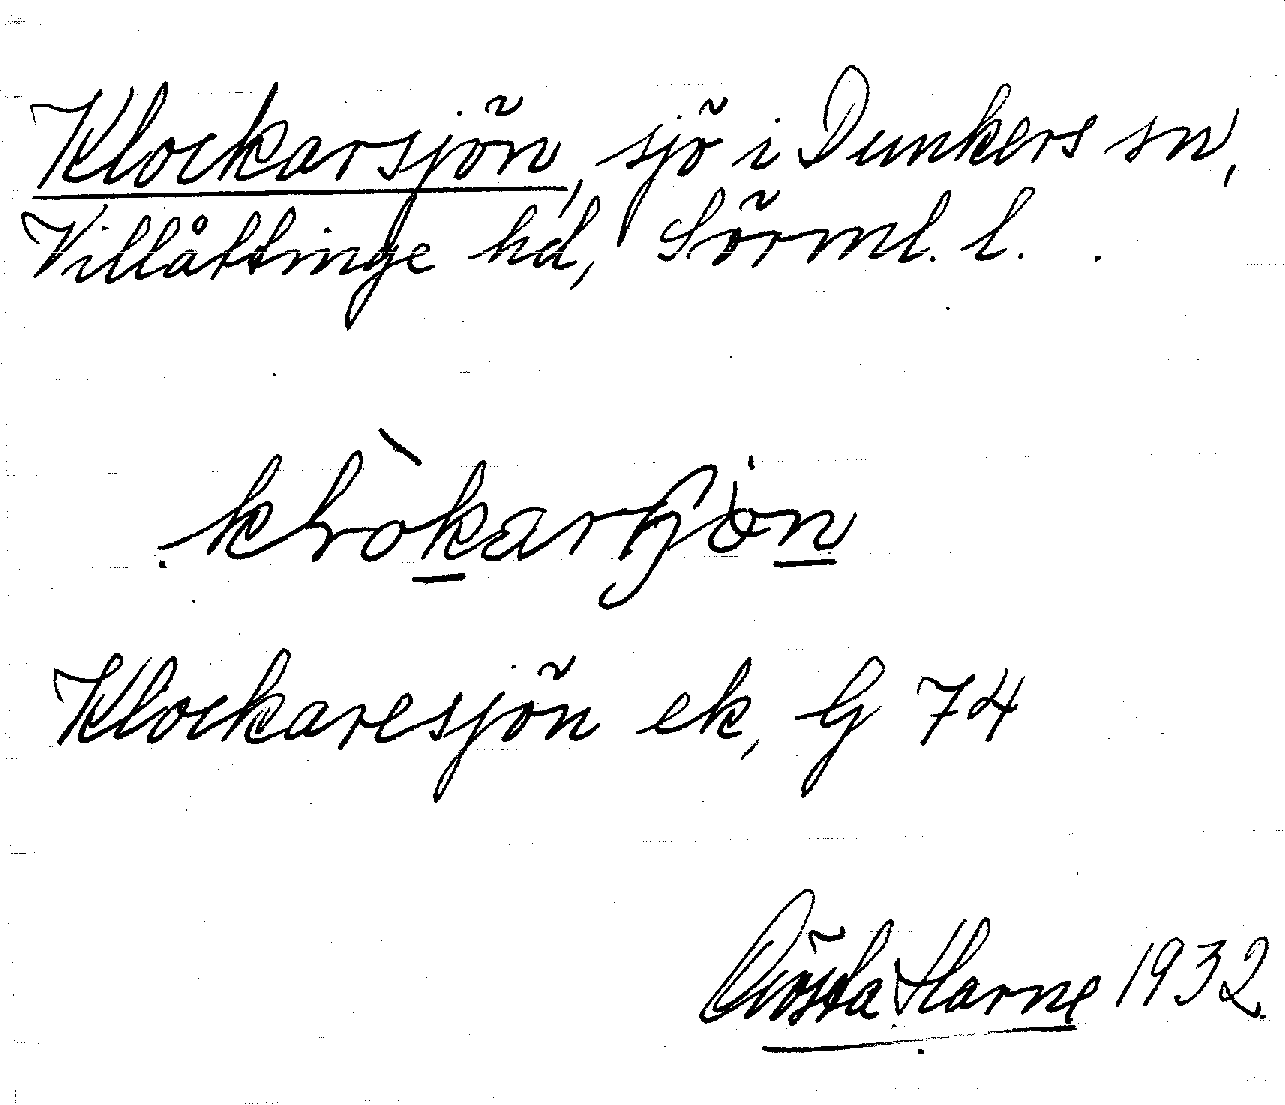 Klockarsjön, sjö i Dunkers sn,
Villåttinge hd, Sörml. l.
Klockaresjön ek, G 74
Gösta Harne 1932